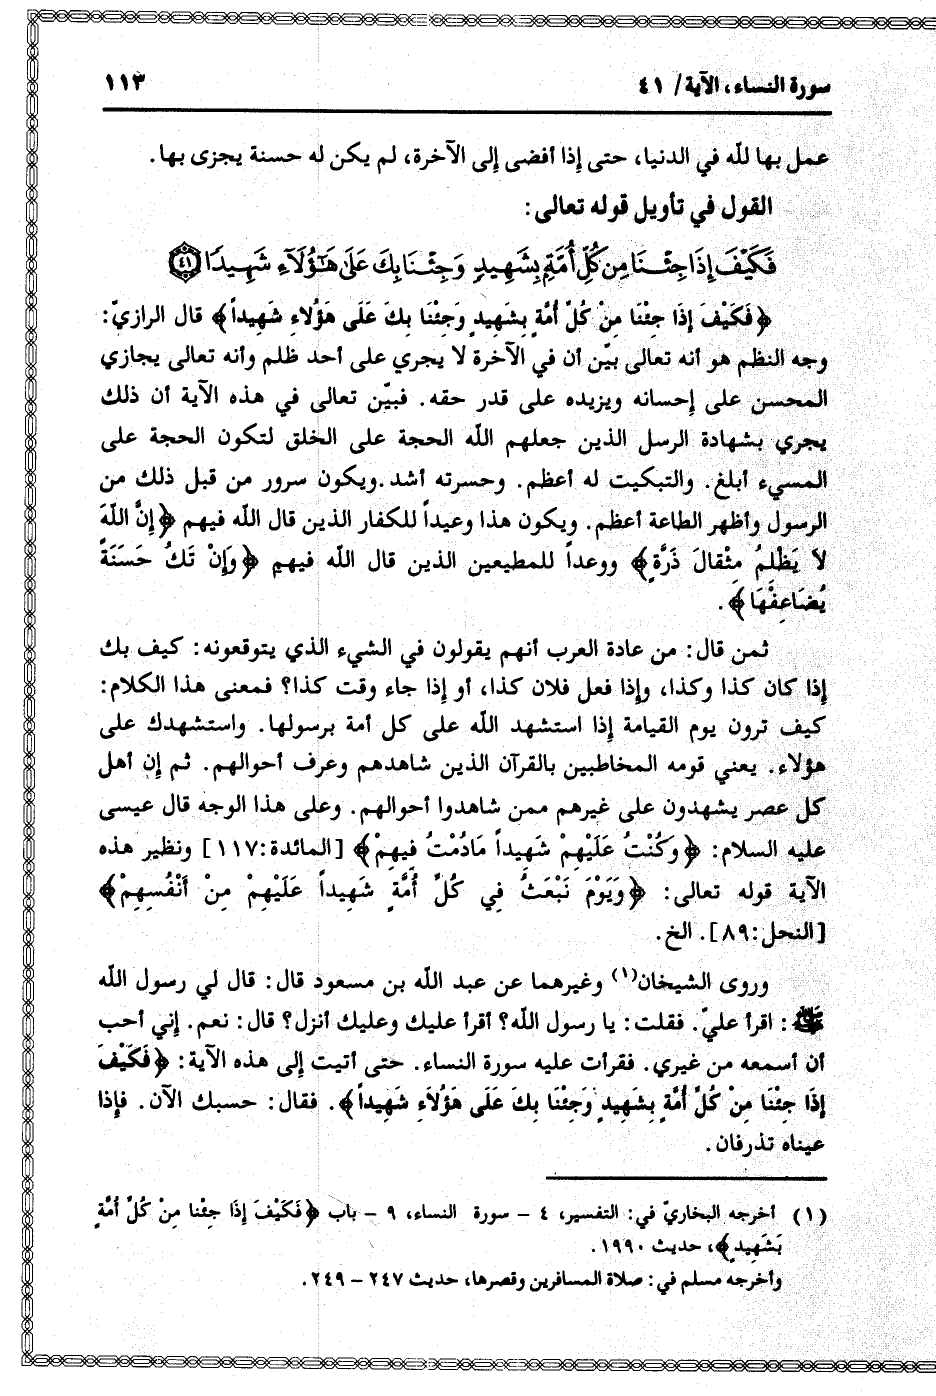 سورة النساء، الآية/ ٤١
١١٣
عمل بها لله في الدنيا، حتى إذا أفضى إلى الآخرة، لم يكن له حسنة يجزى بها.
القول في تأويل قوله تعالى:
فَكَيْفَ إِذَا جِئْنَا مِن كُلِّ أُمَّةٍۭ بِشَهِيدٍ وَجِئْنَا بِكَ عَلَىٰ هَٰٓؤُلَآءِ شَهِيدًا ٤١
﴿فَكَيْفَ إِذَا جِئْنَا مِنْ كُلِّ أُمَّةٍ بِشَهِيدٍ وَجِئْنَا بِكَ عَلَى هَؤُلَاءِ شَهِيداً﴾ قال الرازيّ:
وجه النظم هو أنه تعالى بيّن أن في الآخرة لا يجري على أحد ظلم وأنه تعالى يجازي
المحسن على إحسانه ويزيده على قدر حقه. فبيّن تعالى في هذه الآية أن ذلك
يجري بشهادة الرسل الذين جعلهم الله الحجة على الخلق لتكون الحجة على
المسيء أبلغ. والتبكيت له أعظم. وحسرته أشد.ويكون سرور من قبل ذلك من
الرسول وأظهر الطاعة أعظم. ويكون هذا وعيداً للكفار الذين قال الله فيهم ﴿إِنَّ اللَّهَ
لاَ يَظْلِمُ مِثْقالَ ذَرَّةٍ﴾ ووعداً للمطيعين الذين قال الله فيهم ﴿وَإِنْ تَكُ حَسَنَةً
يُضَاعِفْهَا﴾.
ثمن قال: من عادة العرب أنهم يقولون في الشيء الذي يتوقعونه: كيف بك
إذا كان كذا وكذا، وإذا فعل فلان كذا، أو إذا جاء وقت كذا؟ فمعنى هذا الكلام:
كيف ترون يوم القيامة إذا استشهد الله على كل أمة برسولها. واستشهدك على
هؤلاء. يعني قومه المخاطبين بالقرآن الذين شاهدهم وعرف أحوالهم. ثم إن أهل
كل عصر يشهدون على غيرهم ممن شاهدوا أحوالهم. وعلى هذا الوجه قال عيسى
عليه السلام: ﴿وَكُنْتُ عَلَيْهِمْ شَهِيداً مَادُمْتُ فِيهِمْ﴾ [المائدة:١١٧] ونظير هذه
الآية قوله تعالى: ﴿وَيَوْمَ نَبْعَثُ فِي كُلِّ أُمَّةٍ شَهِيداً عَلَيْهِمْ مِنْ أَنْفُسِهِمْ﴾
[النحل:٨٩]. الخ.
وروى الشيخان(١) وغيرهما عن عبد الله بن مسعود قال: قال لي رسول الله
ﷺ: اقرأ عليّ. فقلت: يا رسول الله؟ أقرأ عليك وعليك أنزل؟ قال: نعم. إني أحب
أن أسمعه من غيري. فقرأت عليه سورة النساء. حتى أتيت إلى هذه الآية: ﴿فَكَيْفَ
إِذَا جِئْنَا مِنْ كُلِّ أُمَّةٍ بِشَهِيدٍ وَجِئْنَا بِكَ عَلَى هَؤُلاَءِ شَهِيداً﴾. فقال: حسبك الآن. فإذا
عيناه تذرفان.
(١) أخرجه البخاريّ في: التفسير، ٤ – سورة النساء، ٩ – باب ﴿فَكَيْفَ إِذَا جِئْنا مِنْ كُلِّ أُمَّةٍ
بَشَهِيدٍ﴾، حديث ١٩٩٠.
وأخرجه مسلم في: صلاة المسافرين وقصرها، حديث ٢٤٧ – ٢٤٩.